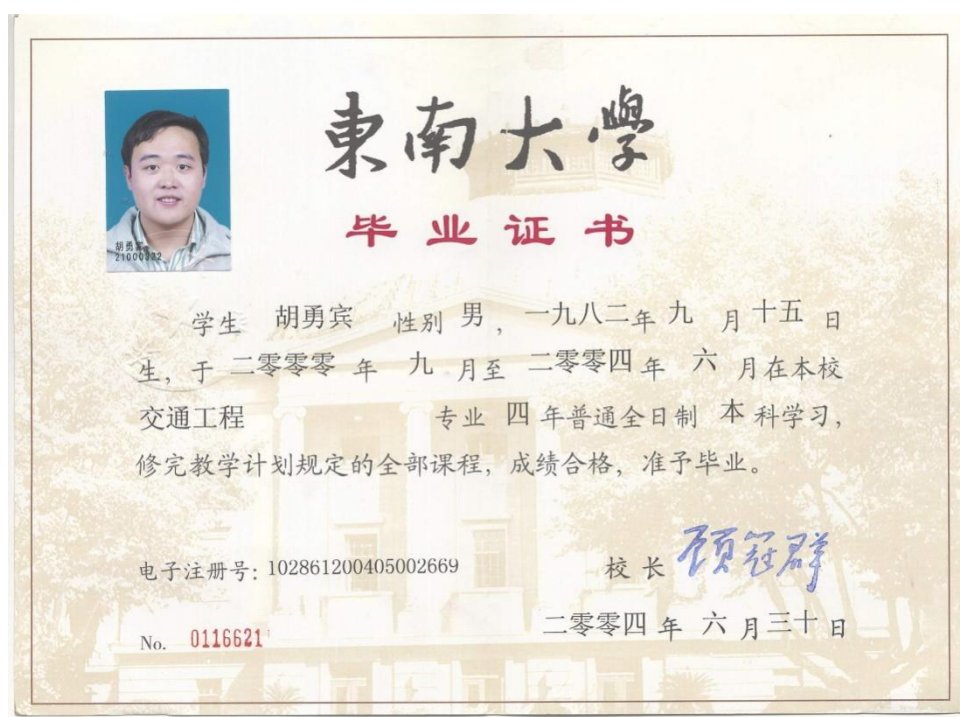 東南大學
毕业证书
胡勇宾
21000332
学生 胡勇宾 性别 男，一九八二年 九 月 十五 日
生，于 二零零零 年 九 月至 二零零四 年 六 月在本校
交通工程 专业 四 年普通全日制 本 科学习，
修完教学计划规定的全部课程，成绩合格，准予毕业。
电子注册号：102861200405002669
校 长 顾冠群
No. 0116621
二零零四 年 六 月三十 日